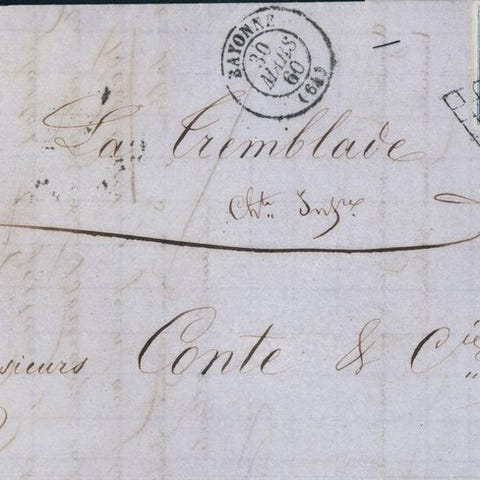 BAYONNE
30
MARS
60
(64)
La Tremblade
Chte. Infre.
sieurs Conte & Cie